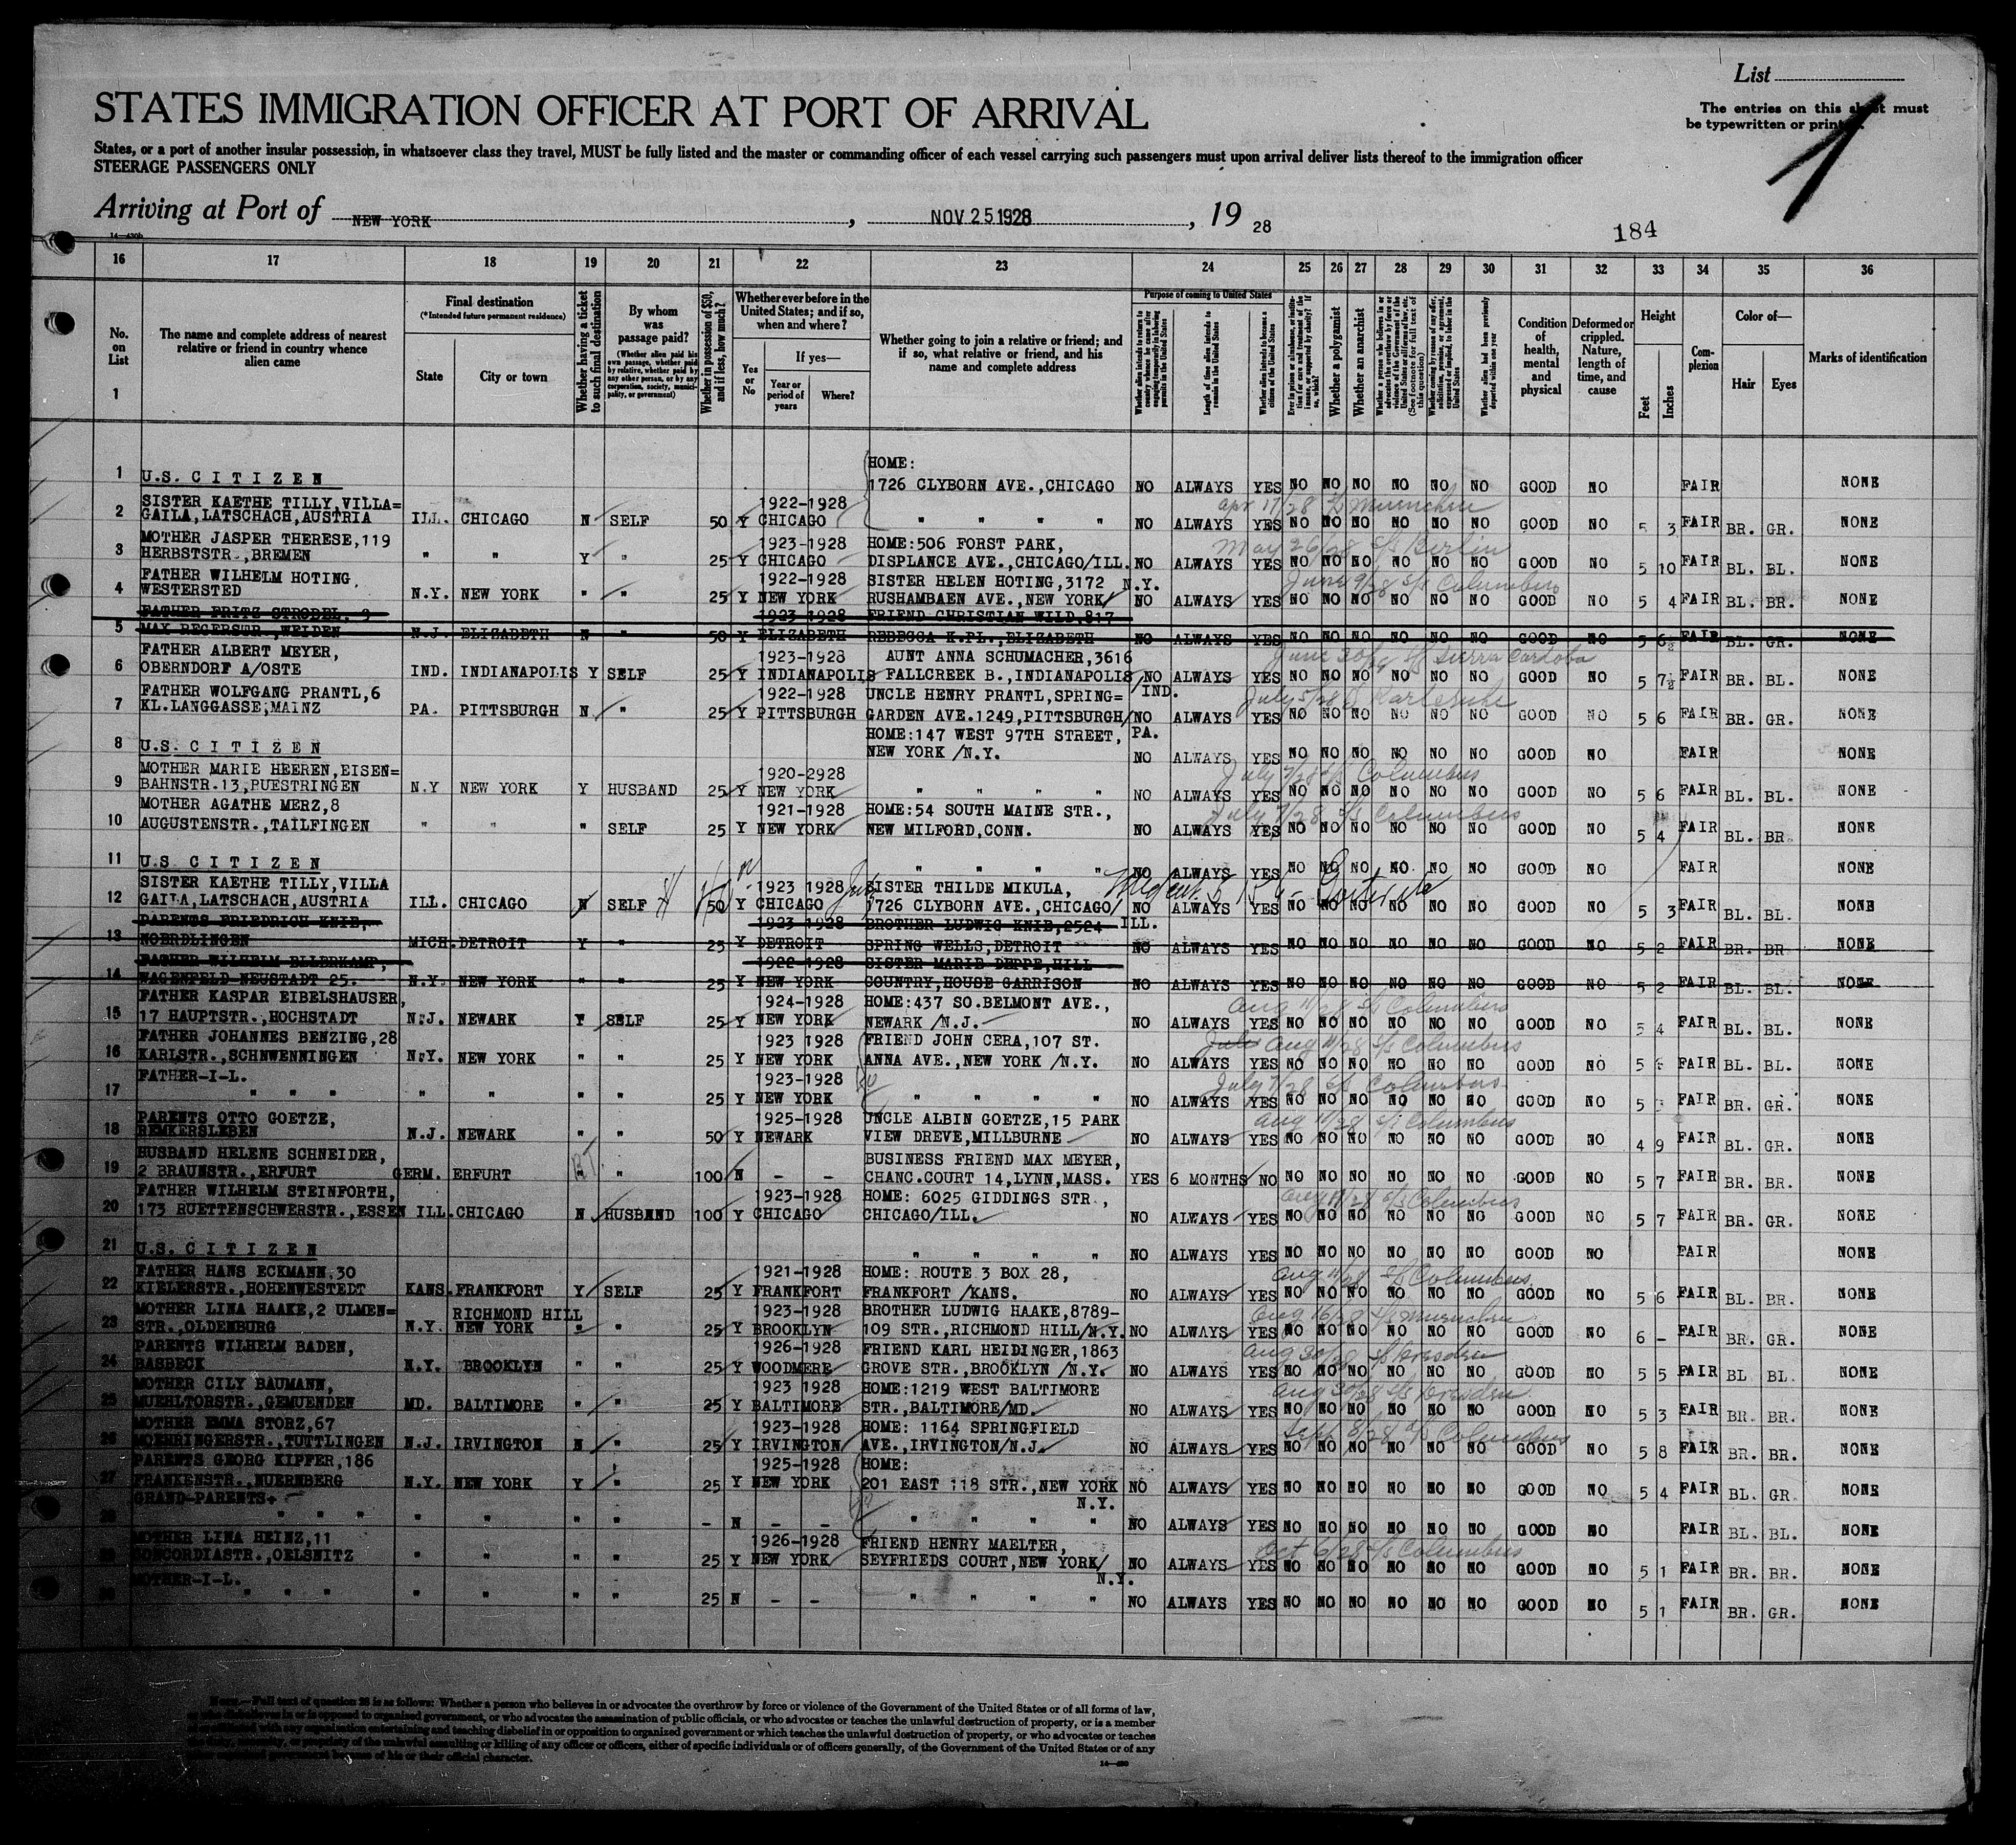 List
STATES IMMIGRATION OFFICER AT PORT OF ARRIVAL
The entries on this sheet must
be typewritten or printed.
1
States, or a port of another insular possession, in whatsoever class they travel, MUST be fully listed and the master or commanding officer of each vessel carrying such passengers must upon arrival deliver lists thereof to the immigration officer
STEERAGE PASSENGERS ONLY
Arriving at Port of NEW YORK, NOV 25 1928, 19 28
184
16 17 18 19 20 21 22 23 24 25 26 27 28 29 30 31 32 33 34 35 36
No. on List 1
The name and complete address of nearest relative or friend in country whence alien came
Final destination (*Intended future permanent residence) State City or town
Whether having a ticket to such final destination
By whom was passage paid? (Whether alien paid his own passage, whether paid by relative, whether paid by any other person, or by any corporation, society, municipality, or government)
Whether in possession of $50, and if less, how much?
Whether ever before in the United States; and if so, when and where? Yes or No If yes— Year or period of years Where?
Whether going to join a relative or friend; and if so, what relative or friend, and his name and complete address
Purpose of coming to United States
Length of time alien intends to remain in the United States
Whether alien intends to become a citizen of the United States
Whether a polygamist
Whether an anarchist
Condition of health, mental and physical
Deformed or crippled. Nature, length of time, and cause
Height Feet Inches
Complexion
Color of— Hair Eyes
Marks of identification
HOME:
1 U.S. C I T I Z E N 1726 CLYBORN AVE.,CHICAGO NO ALWAYS YES NO NO NO NO NO NO GOOD NO FAIR NONE
SISTER KAETHE TILLY,VILLA= 1922-1928 Apr 17/28 S/S Muenchen
2 GAILA,LATSCHACH,AUSTRIA ILL. CHICAGO N SELF 50 Y CHICAGO " " " " NO ALWAYS YES NO NO NO NO NO NO GOOD NO 5 3 FAIR BR. GR. NONE
MOTHER JASPER THERESE,119 1923-1928 HOME:506 FORST PARK, May 26/28 S/S Berlin
3 HERBSTSTR.,BREMEN " " Y " 25 Y CHICAGO DISPLANCE AVE.,CHICAGO/ILL. NO ALWAYS YES NO NO NO NO NO NO GOOD NO 5 10 FAIR BL. BL. NONE
FATHER WILHELM HOTING, 1922-1928 SISTER HELEN HOTING,3172 N.Y. June 9/28 S/S Columbus
4 WESTERSTED N.Y. NEW YORK " " 25 Y NEW YORK RUSHAMBAEN AVE.,NEW YORK/ NO ALWAYS YES NO NO NO NO NO NO GOOD NO 5 4 FAIR BL. BR. NONE
FATHER FRITZ STRODEL, 3 1923-1928 FRIEND CHRISTIAN WILD,817
5 MAX REGERSTR.,WEIDEN N.J. ELIZABETH N " 50 Y ELIZABETH REBECCA K.PL.,ELIZABETH NO ALWAYS YES NO NO NO NO NO NO GOOD NO 5 6½ FAIR BL. GR. NONE
FATHER ALBERT MEYER, 1923-1928 AUNT ANNA SCHUMACHER,3616 June 30/28 S/S Sierra Cordoba
6 OBERNDORF A/OSTE IND. INDIANAPOLIS Y SELF 25 Y INDIANAPOLIS FALLCREEK B.,INDIANAPOLIS/IND. NO ALWAYS YES NO NO NO NO NO NO GOOD NO 5 7½ FAIR BR. BL. NONE
FATHER WOLFGANG PRANTL,6 1922-1928 UNCLE HENRY PRANTL,SPRING= July 5/28 S/S Karlsruhe
7 KL.LANGGASSE,MAINZ PA. PITTSBURGH N " 25 Y PITTSBURGH GARDEN AVE.1249,PITTSBURGH/PA. NO ALWAYS YES NO NO NO NO NO NO GOOD NO 5 6 FAIR BR. GR. NONE
HOME:147 WEST 97TH STREET,
8 U.S. C I T I Z E N NEW YORK /N.Y. NO ALWAYS YES NO NO NO NO NO NO GOOD NO FAIR NONE
MOTHER MARIE HEEREN,EISEN= 1920-2928 July 7/28 S/S Columbus
9 BAHNSTR.13,PUESTRINGEN N.Y NEW YORK Y HUSBAND 25 Y NEW YORK " " " " NO ALWAYS YES NO NO NO NO NO NO GOOD NO 5 6 FAIR BL. BL. NONE
MOTHER AGATHE MERZ,8 1921-1928 HOME:54 SOUTH MAINE STR., July 7/28 S/S Columbus
10 AUGUSTENSTR.,TAILFINGEN " " " SELF 25 Y NEW YORK NEW MILFORD,CONN. NO ALWAYS YES NO NO NO NO NO NO GOOD NO 5 4 FAIR BL. BR NONE
11 U.S C I T I Z E N " " " " NO ALWAYS YES NO NO NO NO NO NO GOOD NO FAIR NONE
SISTER KAETHE TILLY,VILLA 1923 1928 SISTER THILDE MIKULA,
12 GAILA,LATSCHACH,AUSTRIA ILL. CHICAGO N SELF 50 Y CHICAGO 1726 CLYBORN AVE.,CHICAGO/ILL. NO ALWAYS YES NO NO NO NO NO NO GOOD NO 5 3 FAIR BL. BL. NONE
PARENTS FRIEDRICH KNIE, 1923-1928 BROTHER LUDWIG KNIE,2524
13 NOERDLINGEN MICH. DETROIT Y " 25 Y DETROIT SPRING WELLS,DETROIT NO ALWAYS YES NO NO NO NO NO NO GOOD NO 5 2 FAIR BR. BR NONE
FATHER WILHELM ELLERKAMP, 1922-1928 SISTER MARIE DEPPE,HILL
14 WAGENFELD-NEUSTADT 25. N.Y. NEW YORK " " 25 Y NEW YORK COUNTRY,HOUSE GARRISON NO ALWAYS YES NO NO NO NO NO NO GOOD NO 5 2 FAIR BL. BL. NONE
FATHER KASPAR EIBELSHAUSER, 1924-1928 HOME:437 SO.BELMONT AVE., Aug 11/28 S/S Columbus
15 17 HAUPTSTR.,HOCHSTADT N.J. NEWARK Y SELF 25 Y NEW YORK NEWARK /N.J. NO ALWAYS YES NO NO NO NO NO NO GOOD NO 5 4 FAIR BL. BL. NONE
FATHER JOHANNES BENZING,28 1923 1928 FRIEND JOHN CERA,107 ST. July Aug 11/28 S/S Columbus
16 KARLSTR.,SCHNWENNINGEN N.Y. NEW YORK " " 25 Y NEW YORK ANNA AVE.,NEW YORK /N.Y. NO ALWAYS YES NO NO NO NO NO NO GOOD NO 5 FAIR BL. BL. NONE
FATHER-I-L. 1923-1928 July 7/28 S/S Columbus
17 " " " " " " " 25 Y NEW YORK " " " " NO ALWAYS YES NO NO NO NO NO NO GOOD NO 5 FAIR BR. GR. NONE
PARENTS OTTO GOETZE, 1925-1928 UNCLE ALBIN GOETZE,15 PARK Aug 11/28 S/S Columbus
18 REMKERSLEBEN N.J. NEWARK " " 50 Y NEWARK VIEW DREVE,MILLBURNE NO ALWAYS YES NO NO NO NO NO NO GOOD NO 4 9 FAIR BL. GR. NONE
HUSBAND HELENE SCHNEIDER, RT. BUSINESS FRIEND MAX MEYER,
19 2 BRAUNSTR.,ERFURT GERM. ERFURT " " 100 N - - CHANC.COURT 14,LYNN,MASS. YES 6 MONTHS NO NO NO NO NO NO NO GOOD NO 5 7 FAIR BR. BR. NONE
FATHER WILHELM STEINFORTH, 1923-1928 HOME: 6025 GIDDINGS STR., Aug 11/28 S/S Columbus
20 173 RUETTENSCHWERSTR.,ESSEN ILL. CHICAGO N HUSBAND 100 Y CHICAGO CHICAGO/ILL. NO ALWAYS YES NO NO NO NO NO NO GOOD NO 5 7 FAIR BR. GR. NONE
21 U.S. C I T I Z E N " " " " NO ALWAYS YES NO NO NO NO NO NO GOOD NO FAIR NONE
FATHER HANS ECKMANN,30 1921-1928 HOME: ROUTE 3 BOX 28, Aug 11/28 S/S Columbus
22 KIELERSTR.,HOHENWESTEDT KANS. FRANKFORT Y SELF 25 Y FRANKFORT FRANKFORT /KANS. NO ALWAYS YES NO NO NO NO NO NO GOOD NO 5 6 FAIR BL. BR. NONE
MOTHER LINA HAAKE,2 ULMEN= RICHMOND HILL 1923-1928 BROTHER LUDWIG HAAKE,8789- Aug 16/28 S/S Muenchen
23 STR.,OLDENBURG N.Y. NEW YORK " " 25 Y BROOKLYN 109 STR.,RICHMOND HILL/N.Y. NO ALWAYS YES NO NO NO NO NO NO GOOD NO 6 - FAIR BR. GR. NONE
PARENTS WILHELM BADEN, 1926-1928 FRIEND KARL HEIDINGER,1863 Aug 30/28 S/S Dresden
24 BASBECK N.Y. BROOKLYN " " 25 Y WOODMERE GROVE STR.,BROOKLYN /N.Y. NO ALWAYS YES NO NO NO NO NO NO GOOD NO 5 5 FAIR BL BL. NONE
MOTHER CILY BAUMANN, 1923 1928 HOME:1219 WEST BALTIMORE Aug 30/28 S/S Dresden
25 MUEHLTORSTR.,GEMUENDEN MD. BALTIMORE " " 25 Y BALTIMORE STR.,BALTIMORE/MD. NO ALWAYS YES NO NO NO NO NO NO GOOD NO 5 3 FAIR BR. BR. NONE
MOTHER EMMA STORZ,67 1923-1928 HOME: 1164 SPRINGFIELD Sept 8/28 S/S Columbus
26 MOEHRINGERSTR.,TUTTLINGEN N.J. IRVINGTON N " 25 Y IRVINGTON AVE.,IRVINGTON/N.J. NO ALWAYS YES NO NO NO NO NO NO GOOD NO 5 8 FAIR BR. BR. NONE
PARENTS GEORG KIPFER,186 1925-1928 HOME:
27 FRANKENSTR.,NUERNBERG N.Y. NEW YORK Y " 25 Y NEW YORK 201 EAST 118 STR.,NEW YORK N.Y. NO ALWAYS YES NO NO NO NO NO NO GOOD NO 5 4 FAIR BL. GR. NONE
GRAND-PARENTS
28 " " " " " " " - N - - " " " " NO ALWAYS YES NO NO NO NO NO NO GOOD NO FAIR BL. BL. NONE
MOTHER LINA HEINZ,11 1926-1928 FRIEND HENRY MAELTER, Oct 6/28 S/S Columbus
29 CONCORDIASTR.,OELSNITZ " " " " 25 Y NEW YORK SEYFRIEDS COURT,NEW YORK/N.Y. NO ALWAYS YES NO NO NO NO NO NO GOOD NO 5 1 FAIR BR. BR. NONE
MOTHER-I-L.
30 " " " " " " " 25 N - - " " " " NO ALWAYS YES NO NO NO NO NO NO GOOD NO 5 1 FAIR BR. GR. NONE
NOTE.—Full text of question 28 is as follows: Whether a person who believes in or advocates the overthrow by force or violence of the Government of the United States or of all forms of law,
or who disbelieves in or is opposed to organized government, or who advocates the assassination of public officials, or who advocates or teaches the unlawful destruction of property, or is a member
of or affiliated with any organization entertaining and teaching disbelief in or opposition to organized government or which teaches the unlawful destruction of property, or who advocates or teaches
the duty, necessity, or propriety of the unlawful assaulting or killing of any officer or officers, either of specific individuals or of officers generally, of the Government of the United States or of any
other organized government because of his or their official character.